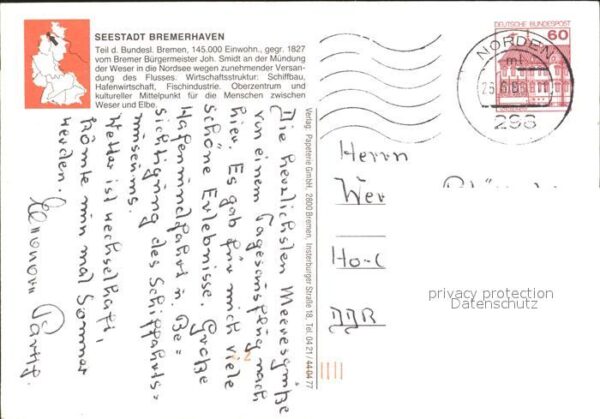 SEESTADT BREMERHAVEN
Teil d. Bundesl. Bremen, 145.000 Einwohn., gegr. 1827
vom Bremer Bürgermeister Joh. Smidt an der Mündung
der Weser in die Nordsee wegen zunehmender Versan-
dung des Flusses. Wirtschaftsstruktur: Schiffbau,
Hafenwirtschaft, Fischindustrie. Oberzentrum und
kultureller Mittelpunkt für die Menschen zwischen
Weser und Elbe.
Die herzlichsten Meeresgrüße
von einem Tagesausflug nach
hier. Es gab für mich viele
schöne Erlebnisse. Große
Hafenrundfahrt u. Be=
sichtigung des Schiffahrts=
museums.
Wetter ist wechselhaft,
könnte nun mal Sommer
werden.
Verlag: Papeterie GmbH, 2800 Bremen, Insterburger Straße 18, Tel. 04 21 / 44 04 77
DEUTSCHE BUNDESPOST
60
NORDEN
ml
298
Herrn
DDR
privacy protection
Datenschutz